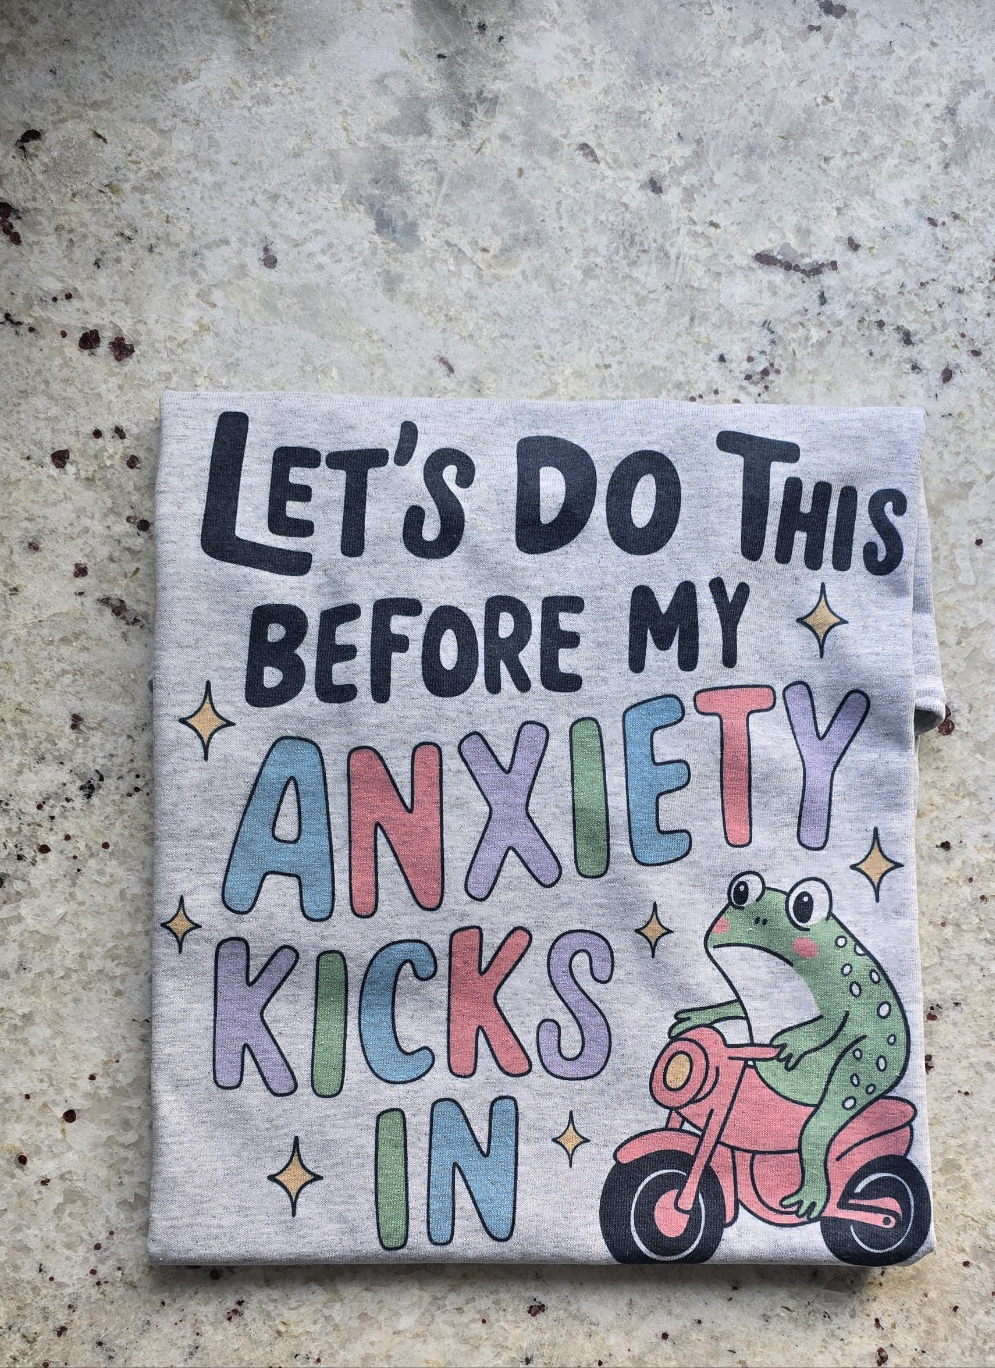 LET'S DO THIS
BEFORE MY
ANXIETY
KICKS
IN